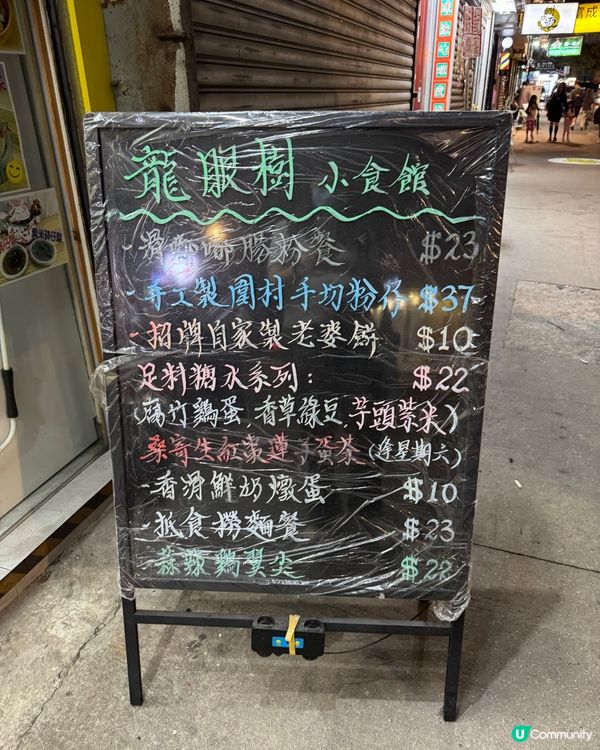 龍眼樹 小食館
-滑嘟嘟腸粉餐 $23
-手工製圍村手切粉仔 $37
-招牌自家製老婆餅 $10
足料糖水系列: $22
(腐竹鷄蛋,香草綠豆,芋頭紫米)
桑寄生紅棗蓮子蛋茶(逢星期六)
-香滑鮮奶燉蛋 $10
-抵食撈麵餐 $23
-蒜辣鷄翼尖 $28
U Community